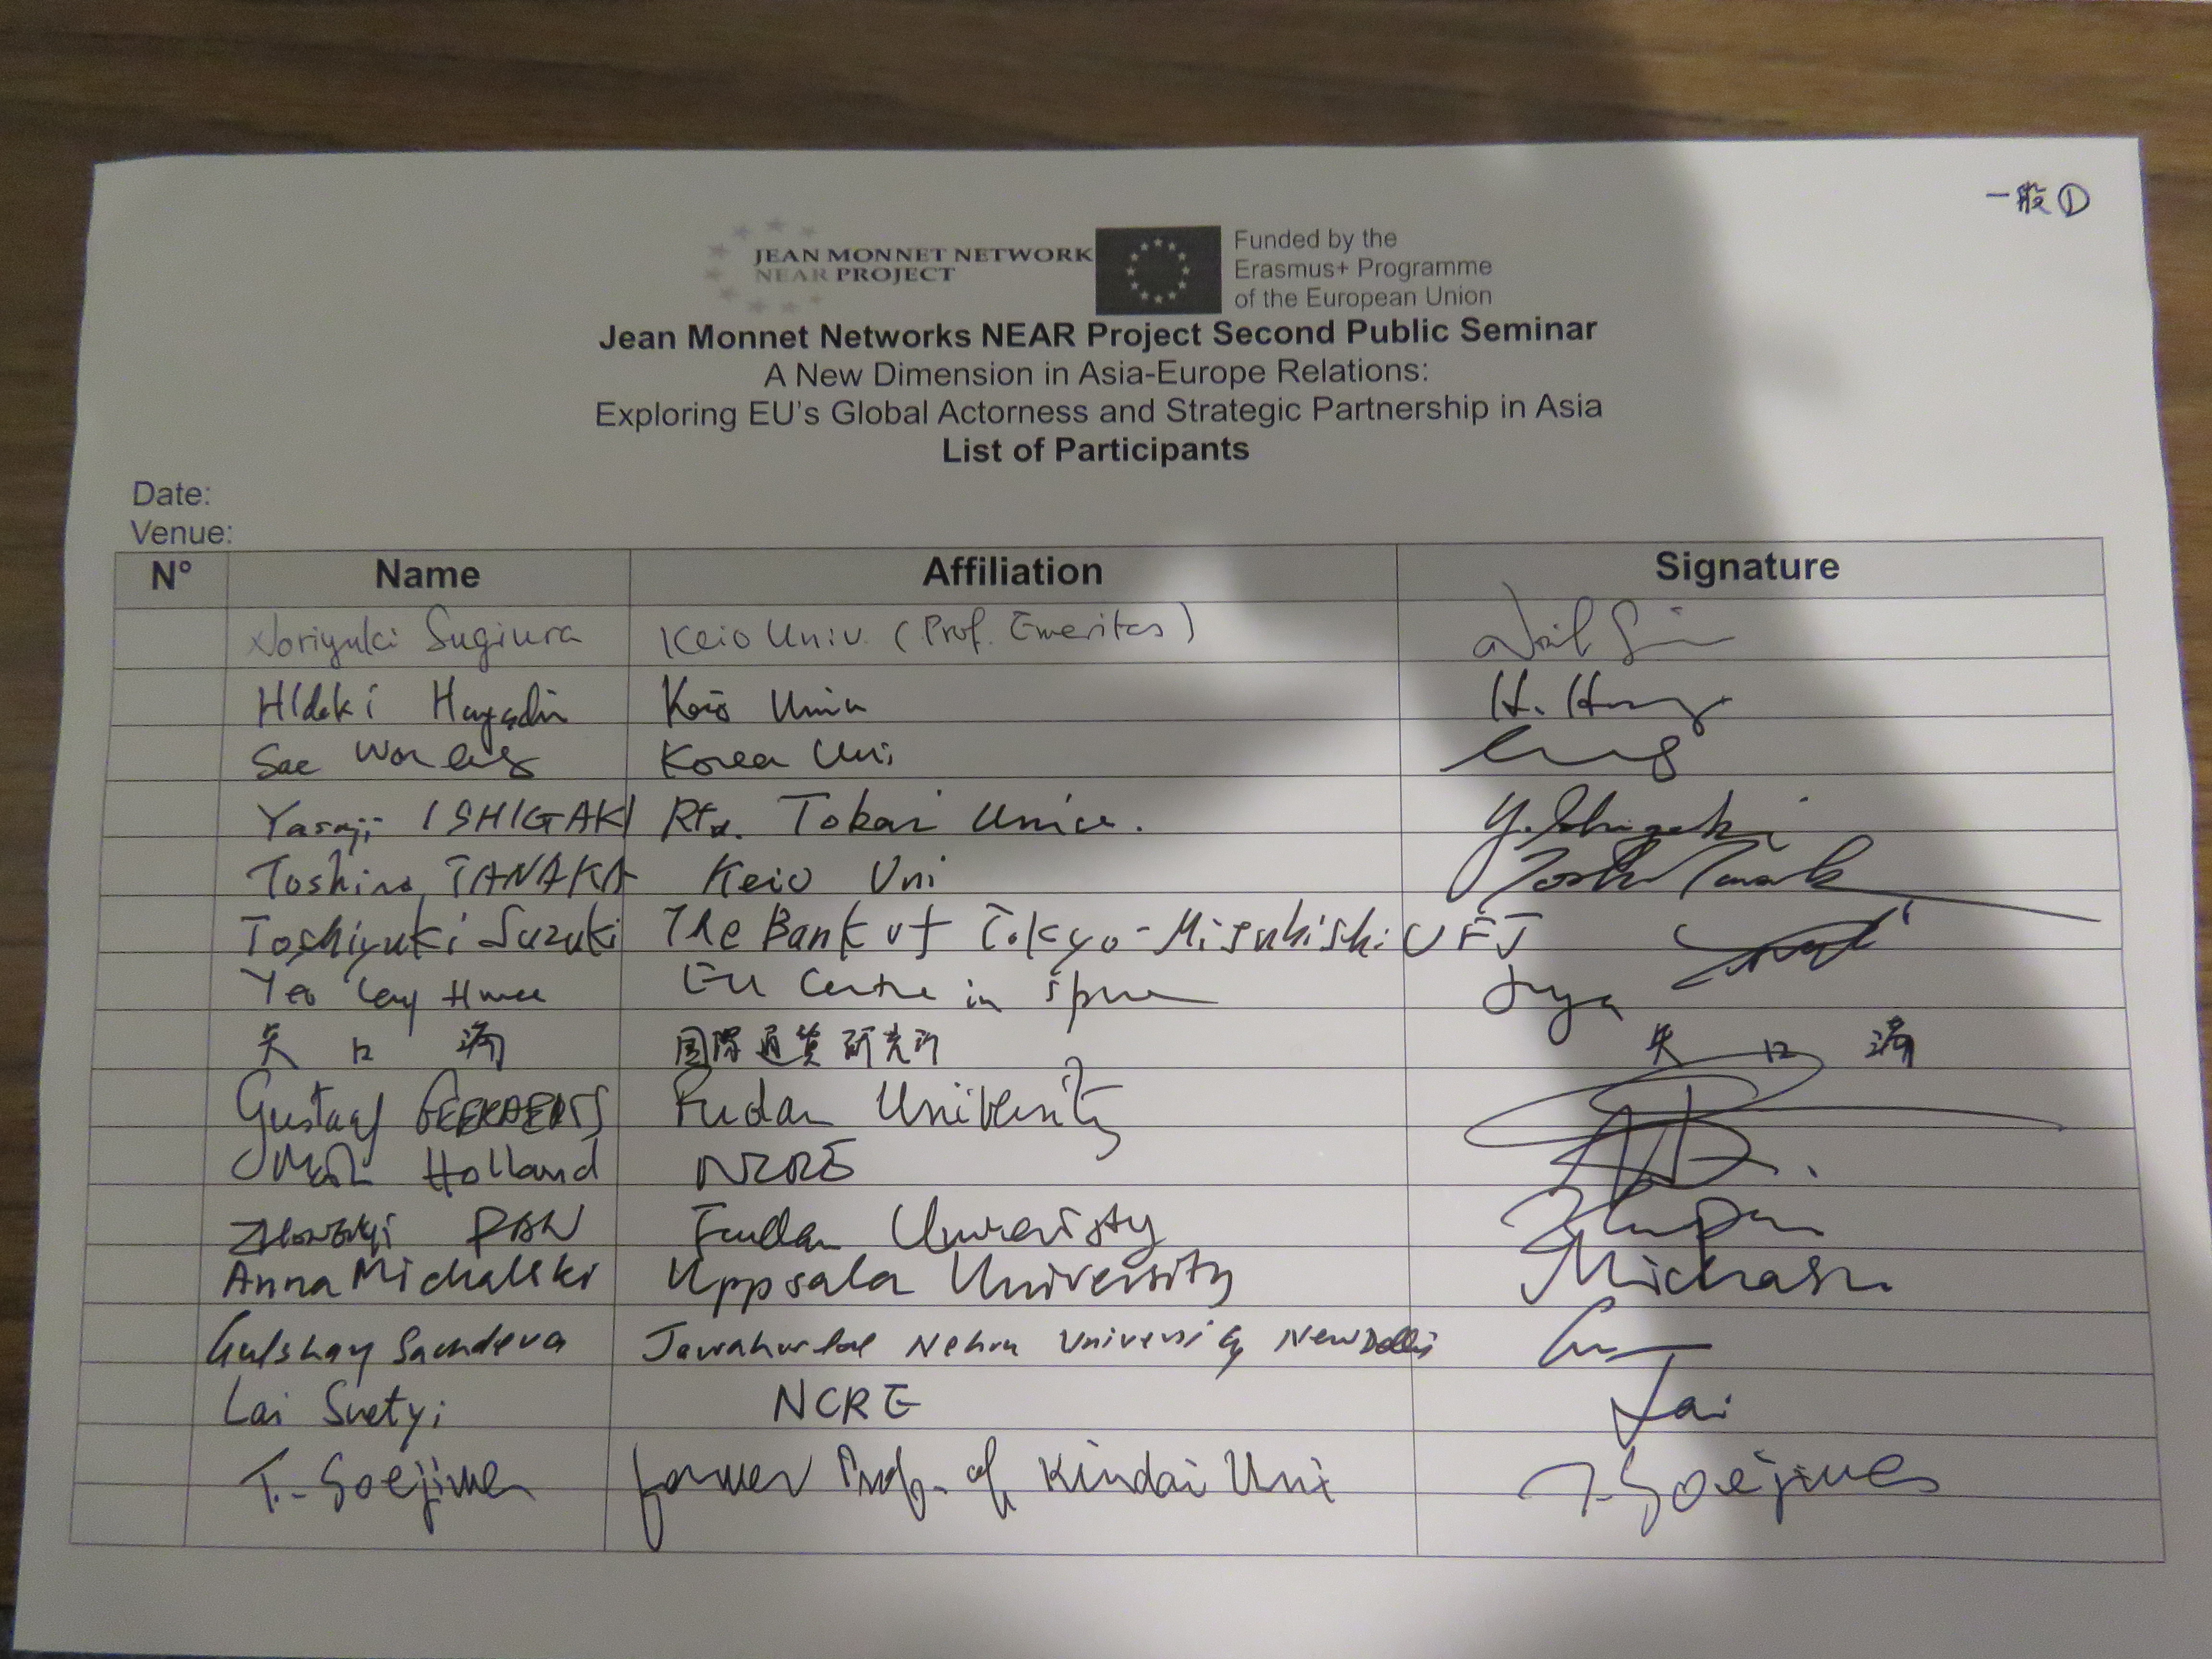 一般①
JEAN MONNET NETWORK
NEAR PROJECT
Funded by the
Erasmus+ Programme
of the European Union
Jean Monnet Networks NEAR Project Second Public Seminar
A New Dimension in Asia-Europe Relations:
Exploring EU's Global Actorness and Strategic Partnership in Asia
List of Participants
Date:
Venue:
N° Name Affiliation Signature
Noriyuki Sugiura Keio Univ. (Prof. Emeritus)
Hideki Keio Univ H.
Sae Won Korea Uni
Yasuji ISHIGAKI Tokai Univ. Y. Ishigaki
Toshiro TANAKA Keio Uni
Toshiyuki Suzuki The Bank of Tokyo-Misubishi UFJ
Yeo Lay Hwee EU Centre in
矢口 満 国際通貨研究所 矢口 満
Gustaaf GEERAERTS Fudan University
Holland NCRE
PAN Fudan University
Anna Michalski Uppsala University
Gulshan Sachdeva Jawaharlal Nehru University New Delhi
Lai Suetyi NCRE Lai
T. Soejima former Prof. of Kindai Uni T. Soejima